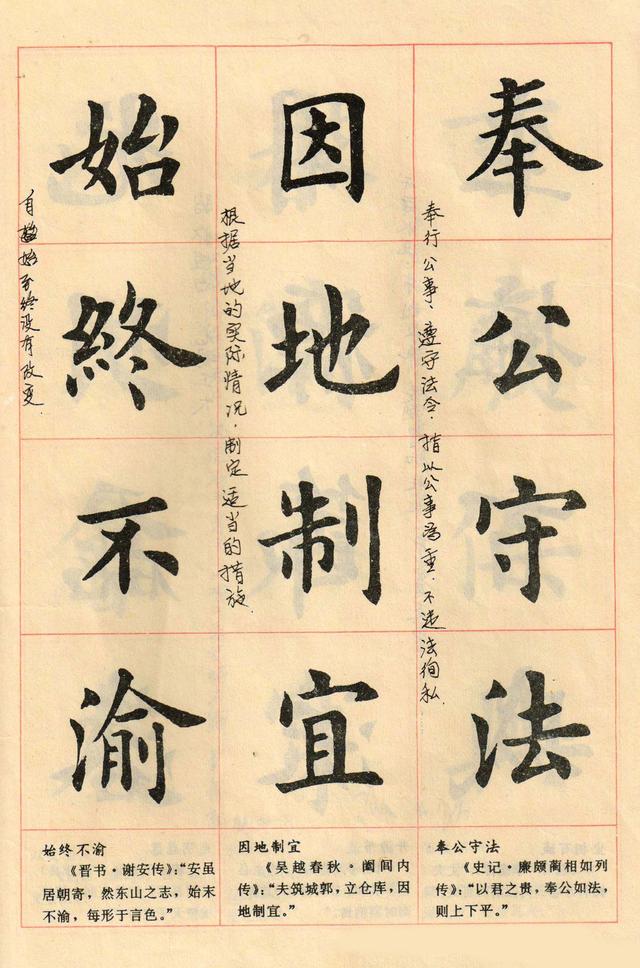 奉公守法
奉行公事、遵守法令.指以公事为重.不违法徇私.
因地制宜
根据当地的实际情况.制定适当的措施.
始終不渝
自始至终没有改变.
奉公守法
《史记·廉颇蔺相如列
传》:“以君之贵,奉公如法,
则上下平。”
因地制宜
《吴越春秋·阖闾内
传》:“夫筑城郭,立仓库,因
地制宜。”
始终不渝
《晋书·谢安传》:“安虽
居朝寄,然东山之志,始末
不渝,每形于言色。”